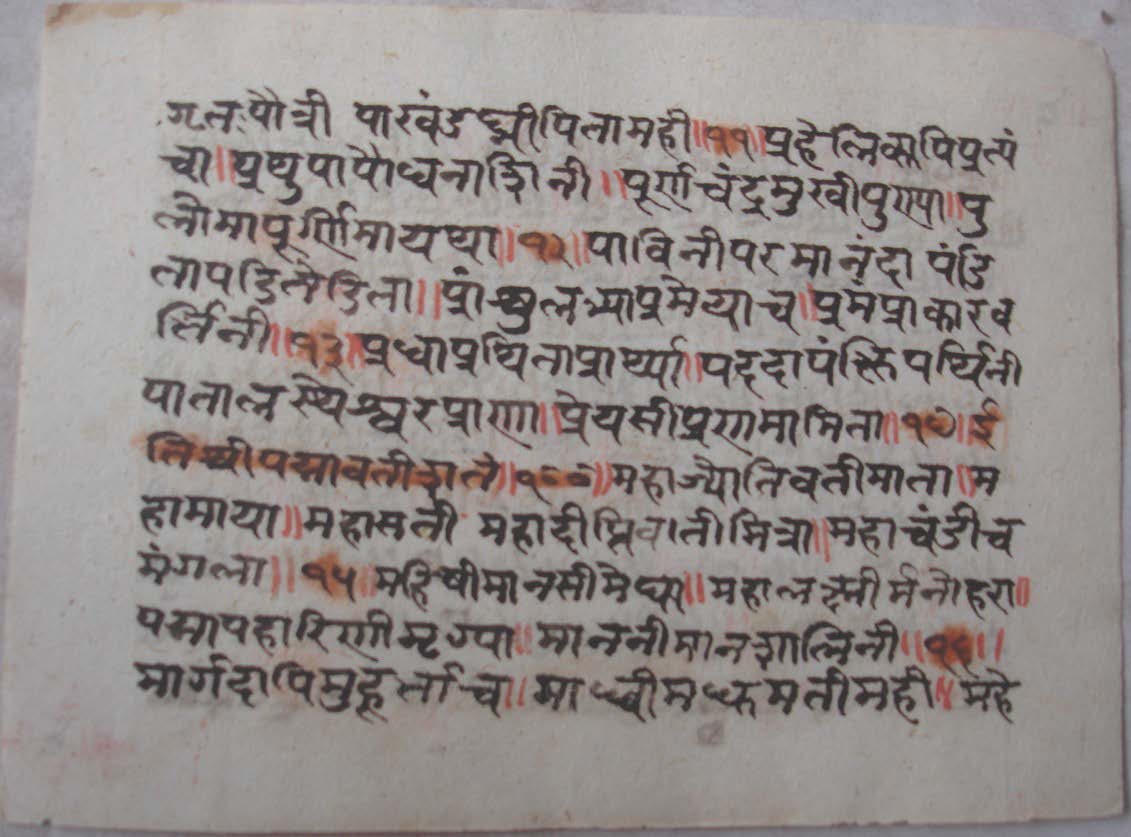 गतःपौत्री पाखंडघ्नीपितामही॥११॥प्रहेलिकापिप्रत्यं
चा॥प्रथुपापौघनाशिनी॥पूर्णचंद्रमुखीपुण्या॥पु
लोमापूर्णिमायथा॥१२॥पाविनीपरमानंदा पंडि
तापंडितेडिता॥प्रांशुलभ्याप्रमेयाच॥प्रमंप्राकारव
र्तिनी॥१३॥प्रधाप्रथिताप्रार्थ्या॥पददापंक्तिपर्थिनी
पातालस्येश्वरप्राणा॥प्रेयसीप्रणमामिता॥१४॥ई
तिश्रीपद्मावतीशते॥१००॥महाज्योतिवतीमाता॥म
हामाया॥महासती महादीप्तिवातीमित्रा॥महाचंडीच
मंगला॥१५॥महिषीमानसीमेघा॥महालक्ष्मीर्मनोहरा॥
पद्मापहारिणीमृग्या॥माननीमानशालिनी॥१६॥
मार्गदापिमुहूर्ताच॥माध्वीमधुमतीमही॥महे